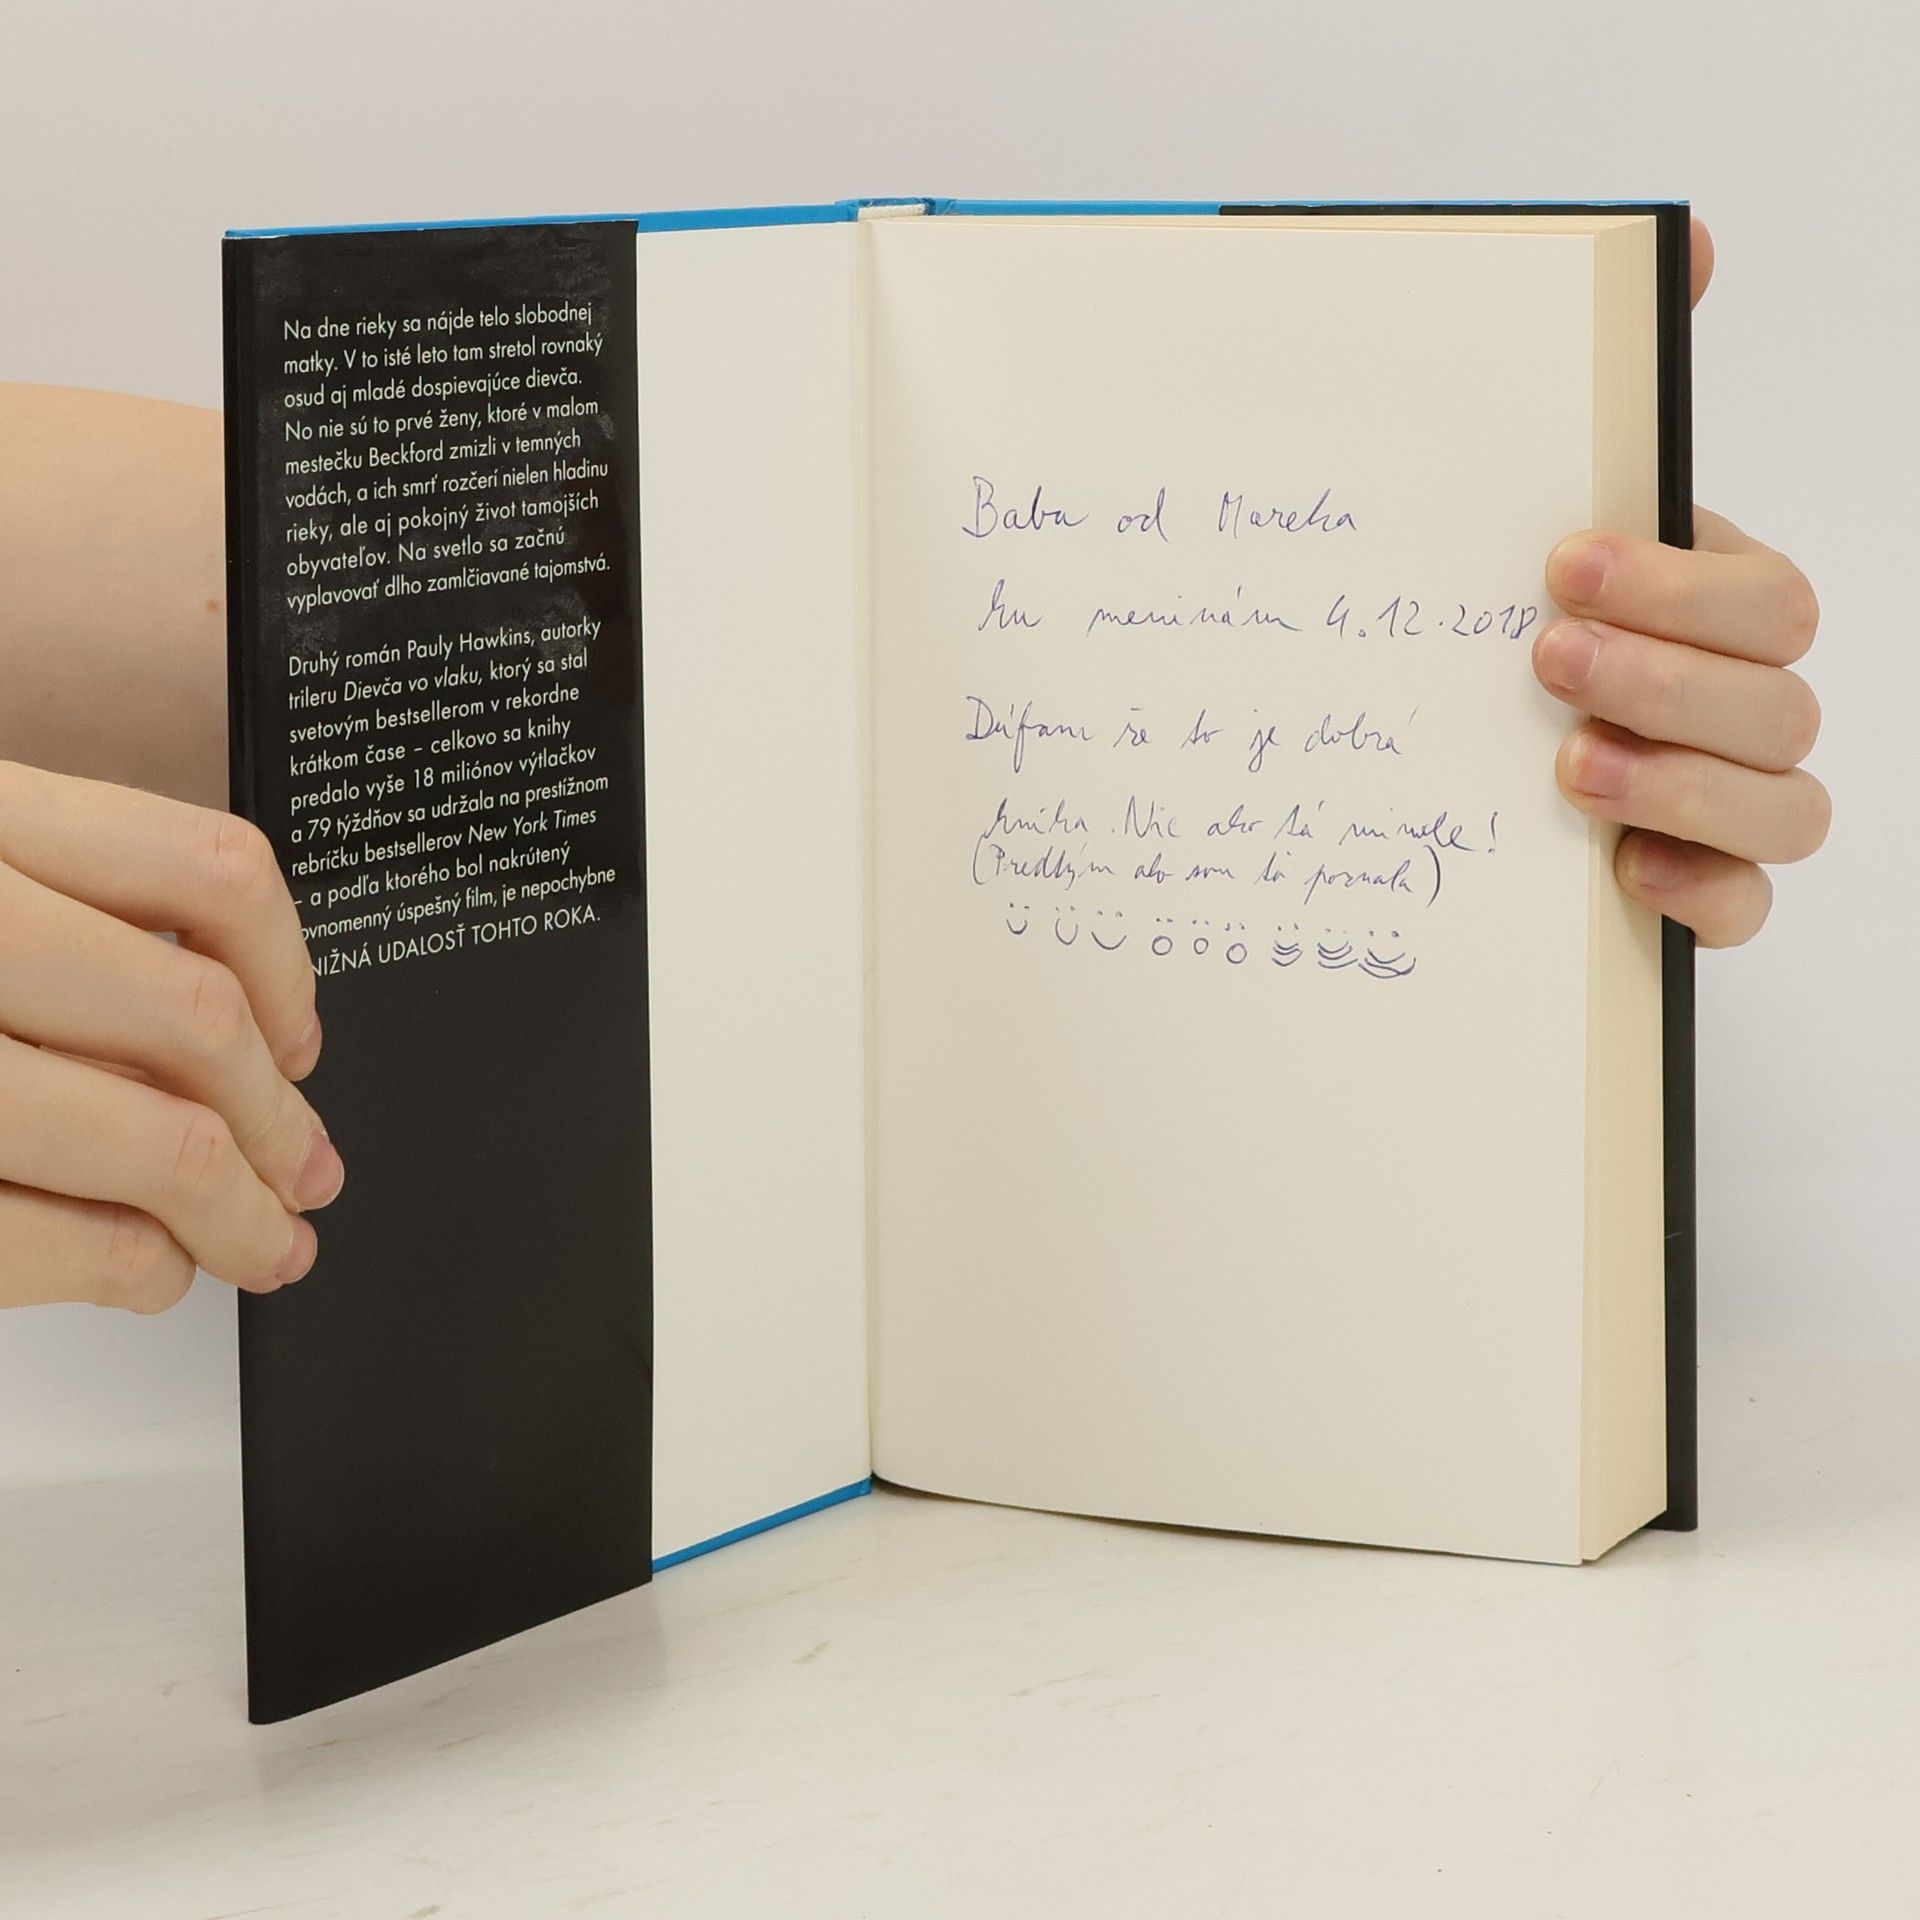 Na dne rieky sa nájde telo slobodnej
matky. V to isté leto tam stretol rovnaký
osud aj mladé dospievajúce dievča.
No nie sú to prvé ženy, ktoré v malom
mestečku Beckford zmizli v temných
vodách, a ich smrť rozčerí nielen hladinu
rieky, ale aj pokojný život tamojších
obyvateľov. Na svetlo sa začnú
vyplavovať dlho zamlčiavané tajomstvá.
Druhý román Pauly Hawkins, autorky
trileru Dievča vo vlaku, ktorý sa stal
svetovým bestsellerom v rekordne
krátkom čase – celkovo sa knihy
predalo vyše 18 miliónov výtlačkov
a 79 týždňov sa udržala na prestížnom
rebríčku bestsellerov New York Times
– a podľa ktorého bol nakrútený
ovnomenný úspešný film, je nepochybne
NIŽNÁ UDALOSŤ TOHTO ROKA.
Baba od Mareka
ku meninám 4.12.2018
Dúfam že to je dobrá
kniha. Nie ako tá minule!
(Predtým ako som ťa poznala)